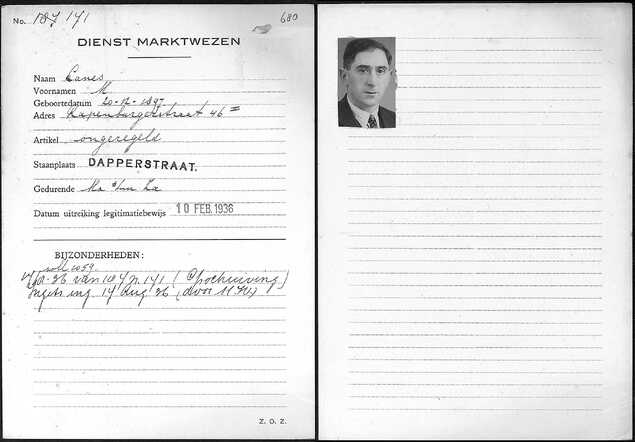 No. 187 141
680
DIENST MARKTWEZEN
Naam Canes
Voornamen M
Geboortedatum 20-12-1897
Adres Rapenburgerstraat 46
Artikel ongeregeld
Staanplaats DAPPERSTRAAT.
Gedurende Ma t/m Za
Datum uitreiking legitimatiebewijs 10 FEB. 1936
BIJZONDERHEDEN:
26 van 187 n 141 (Opschuiving)
14 Aug 36 (door
Z. O. Z.